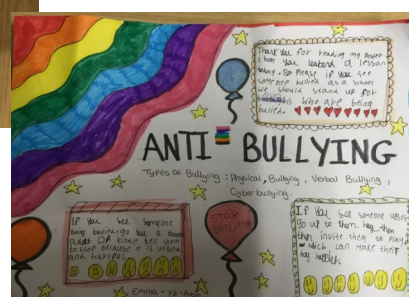 Thank you for reading my Poster
I hope you learand a lesson
today. So Please if you see
someone bullied as a school
we should stand up for
who are being
bullied.
ANTI-BULLYING
Types of Bullying: Physical, Bullying, Verbal Bullying,
Cyber bullying.
If you see someone
being bullied go tell a
adult OR kindly tell them
to stop because it is unkind
and hurtful.
STOP
BULLYING
If you see someone upset
go up to them hug them
then invite them to play
which can make them
happier.
Emma - Y3 -